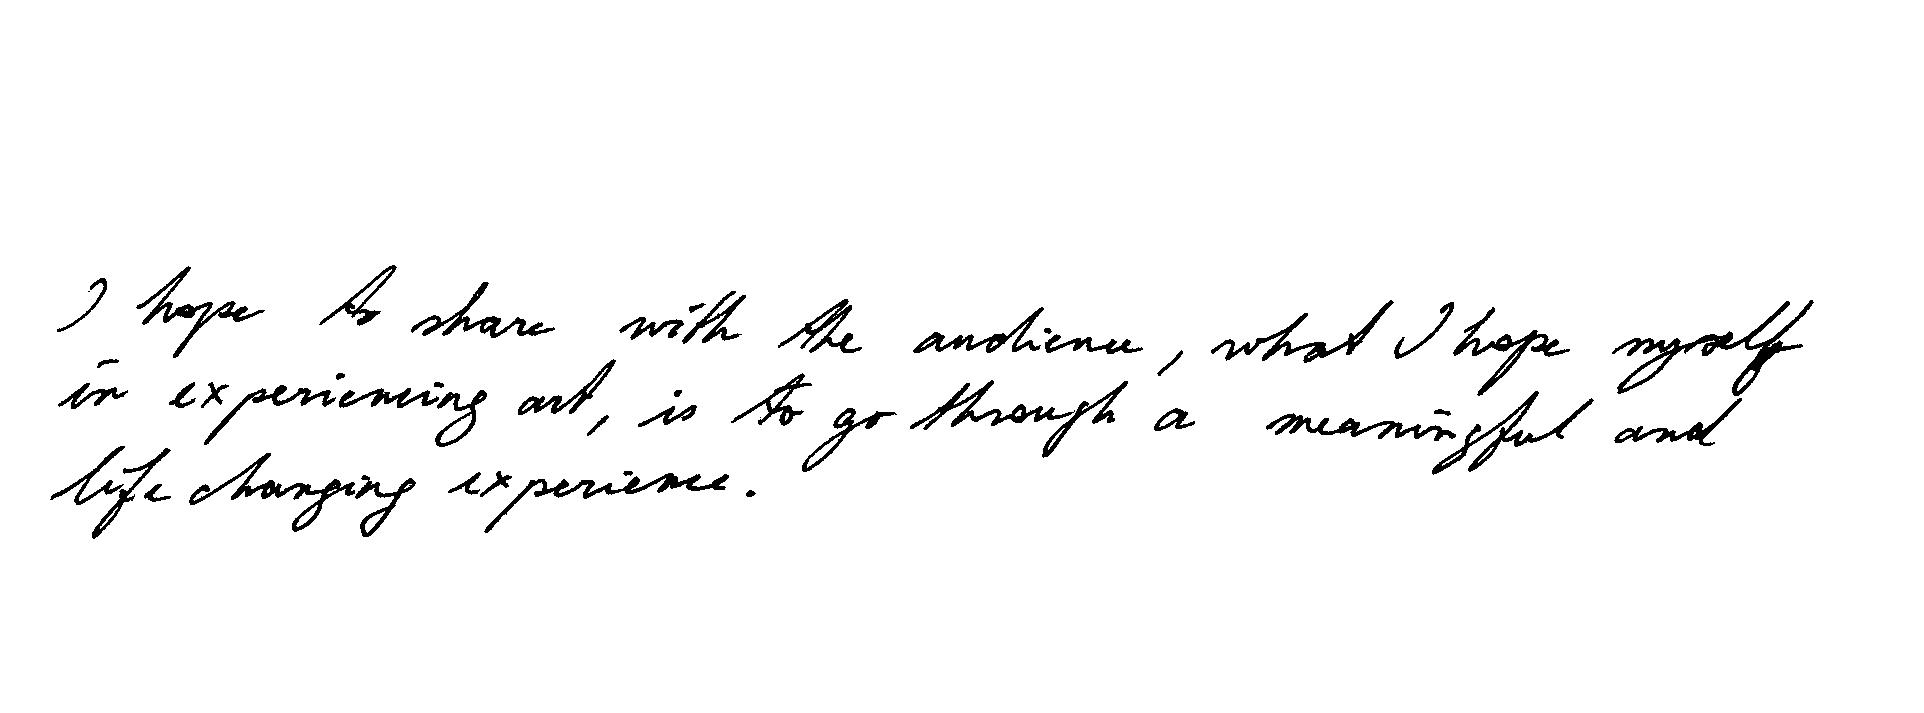 I hope to share with the audience, what I hope myself
in experiencing art, is to go through a meaningful and
life changing experience.